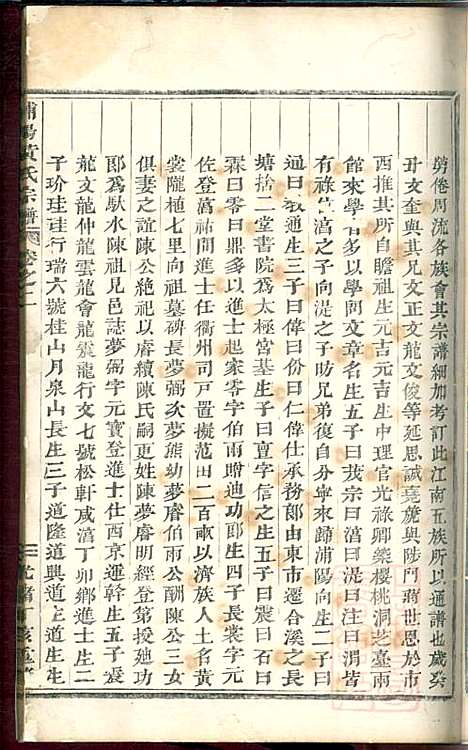 勞倦周流各族會其宗譜細加考訂此江南五族所以通譜也歲癸
丑文奎與其兄文正文龍文俊等延思誠堯麓與陟門蒋世恩於市
西推其所自贍祖生元吉元吉生中理官光祿卿築櫻桃洞芝臺兩
館來學者多以學問文章名生五子曰茂宗曰渭曰湜曰注曰渭皆
有祿渭之子向湜之子昉兄弟復自分寧來歸浦陽向生二子曰
過曰通生三子曰偉曰仁偉仕承務郎由東市遷合溪之長
塘搭二堂書院為太極宮基生子曰宣字信之生五子曰震曰石曰
霖曰零曰鼎多以進士起家零字伯雨贈迪功郎生四子長裳字元
佐登萬祐間進士任衢州司戶置擬范田二百畝以濟族人土名黃
裳隴植七里向祖墓碑長夢弼次夢熊幼夢麐伯雨公酬陳公三
俱妻之誼陳公絶祀以麐續陳氏嗣更姓陳夢麐明經登第授廸功
郎為馱水陳祖見邑誌夢弼字元寶登進士仕西京運幹生五子
龍文龍仲龍雲龍會龍震龍行文七號松軒咸淳丁卯鄉進士生二
子玠珪珪行瑞六號桂山月泉山長生三子道隆道興道生道生生
浦陽黃氏宗譜 卷之二
二 光緒丁亥